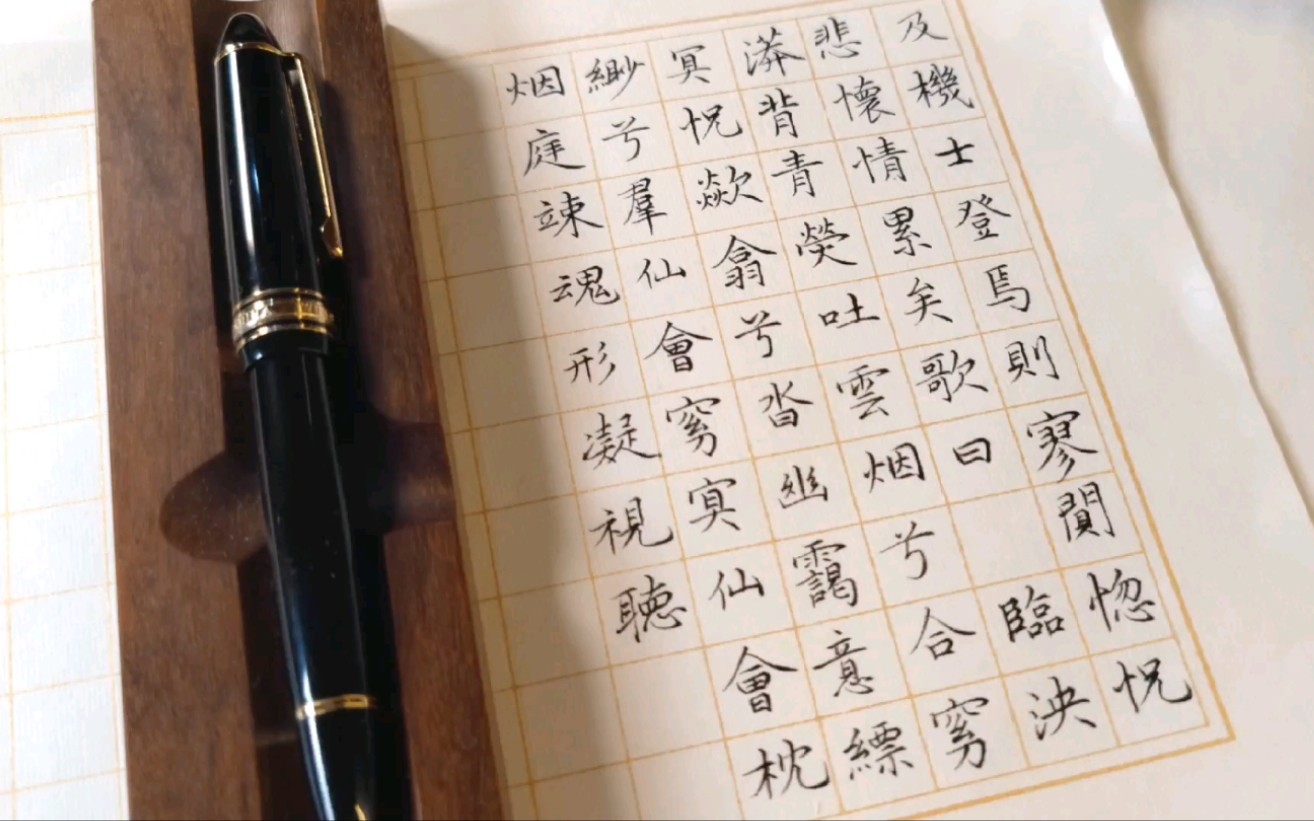 及機士登焉則寥閴惚怳
悲懷情累矣歌曰 臨泱
漭背青熒吐雲烟兮合窈
冥怳歘翕兮沓幽靄意縹
緲兮羣仙會窈冥仙會枕
烟庭竦魂形凝視聽